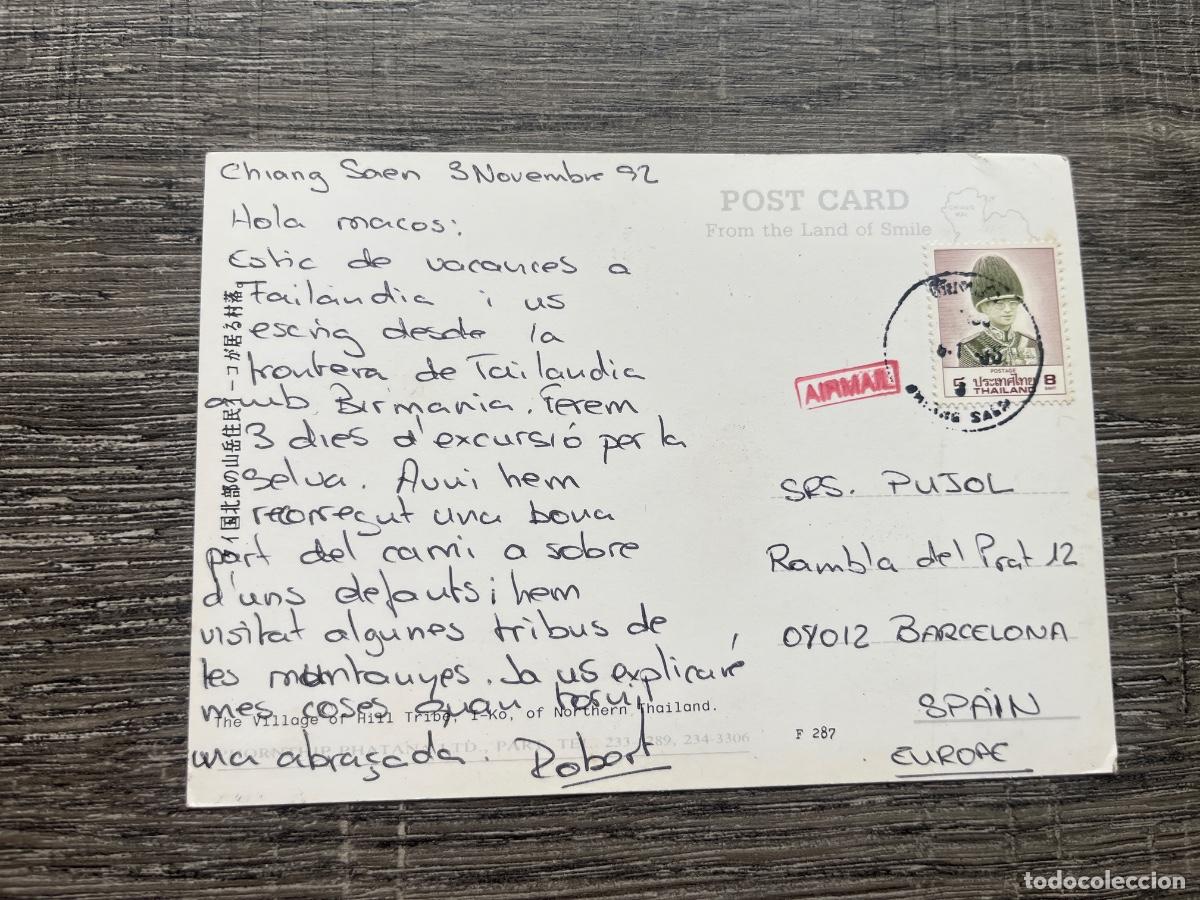 Chiang Saen 3 Novembre 92
Hola macos:
Estic de vacances a
Tailandia i us
escrig desde la
frontera de Tailandia
amb Birmania. Ferem
3 dies d'excursió per la
selva. Avui hem
recorregut una bona
part del cami a sobre
d'uns defauts i hem
visitat algunes tribus de
les montanyes. Ja us explicaré
mes coses quan torni
una abraçada. Robert
タイ国北部の山岳住民イーコが居る村落。
The Village of Hill Tribe, I-Ko, of Northern Thailand.
PHORNTHIP PHATANA LTD., PART. TEL. 233- 289, 234-3306
F 287
POST CARD
From the Land of Smile
CHIANG
MAI
POSTAGE
ประเทศไทย 8
THAILAND BAHT
CHIANG SAEN
AIRMAIL
SRS. PUJOL
Rambla del Prat 12
08012 BARCELONA
SPAIN
EUROPE
todocoleccion